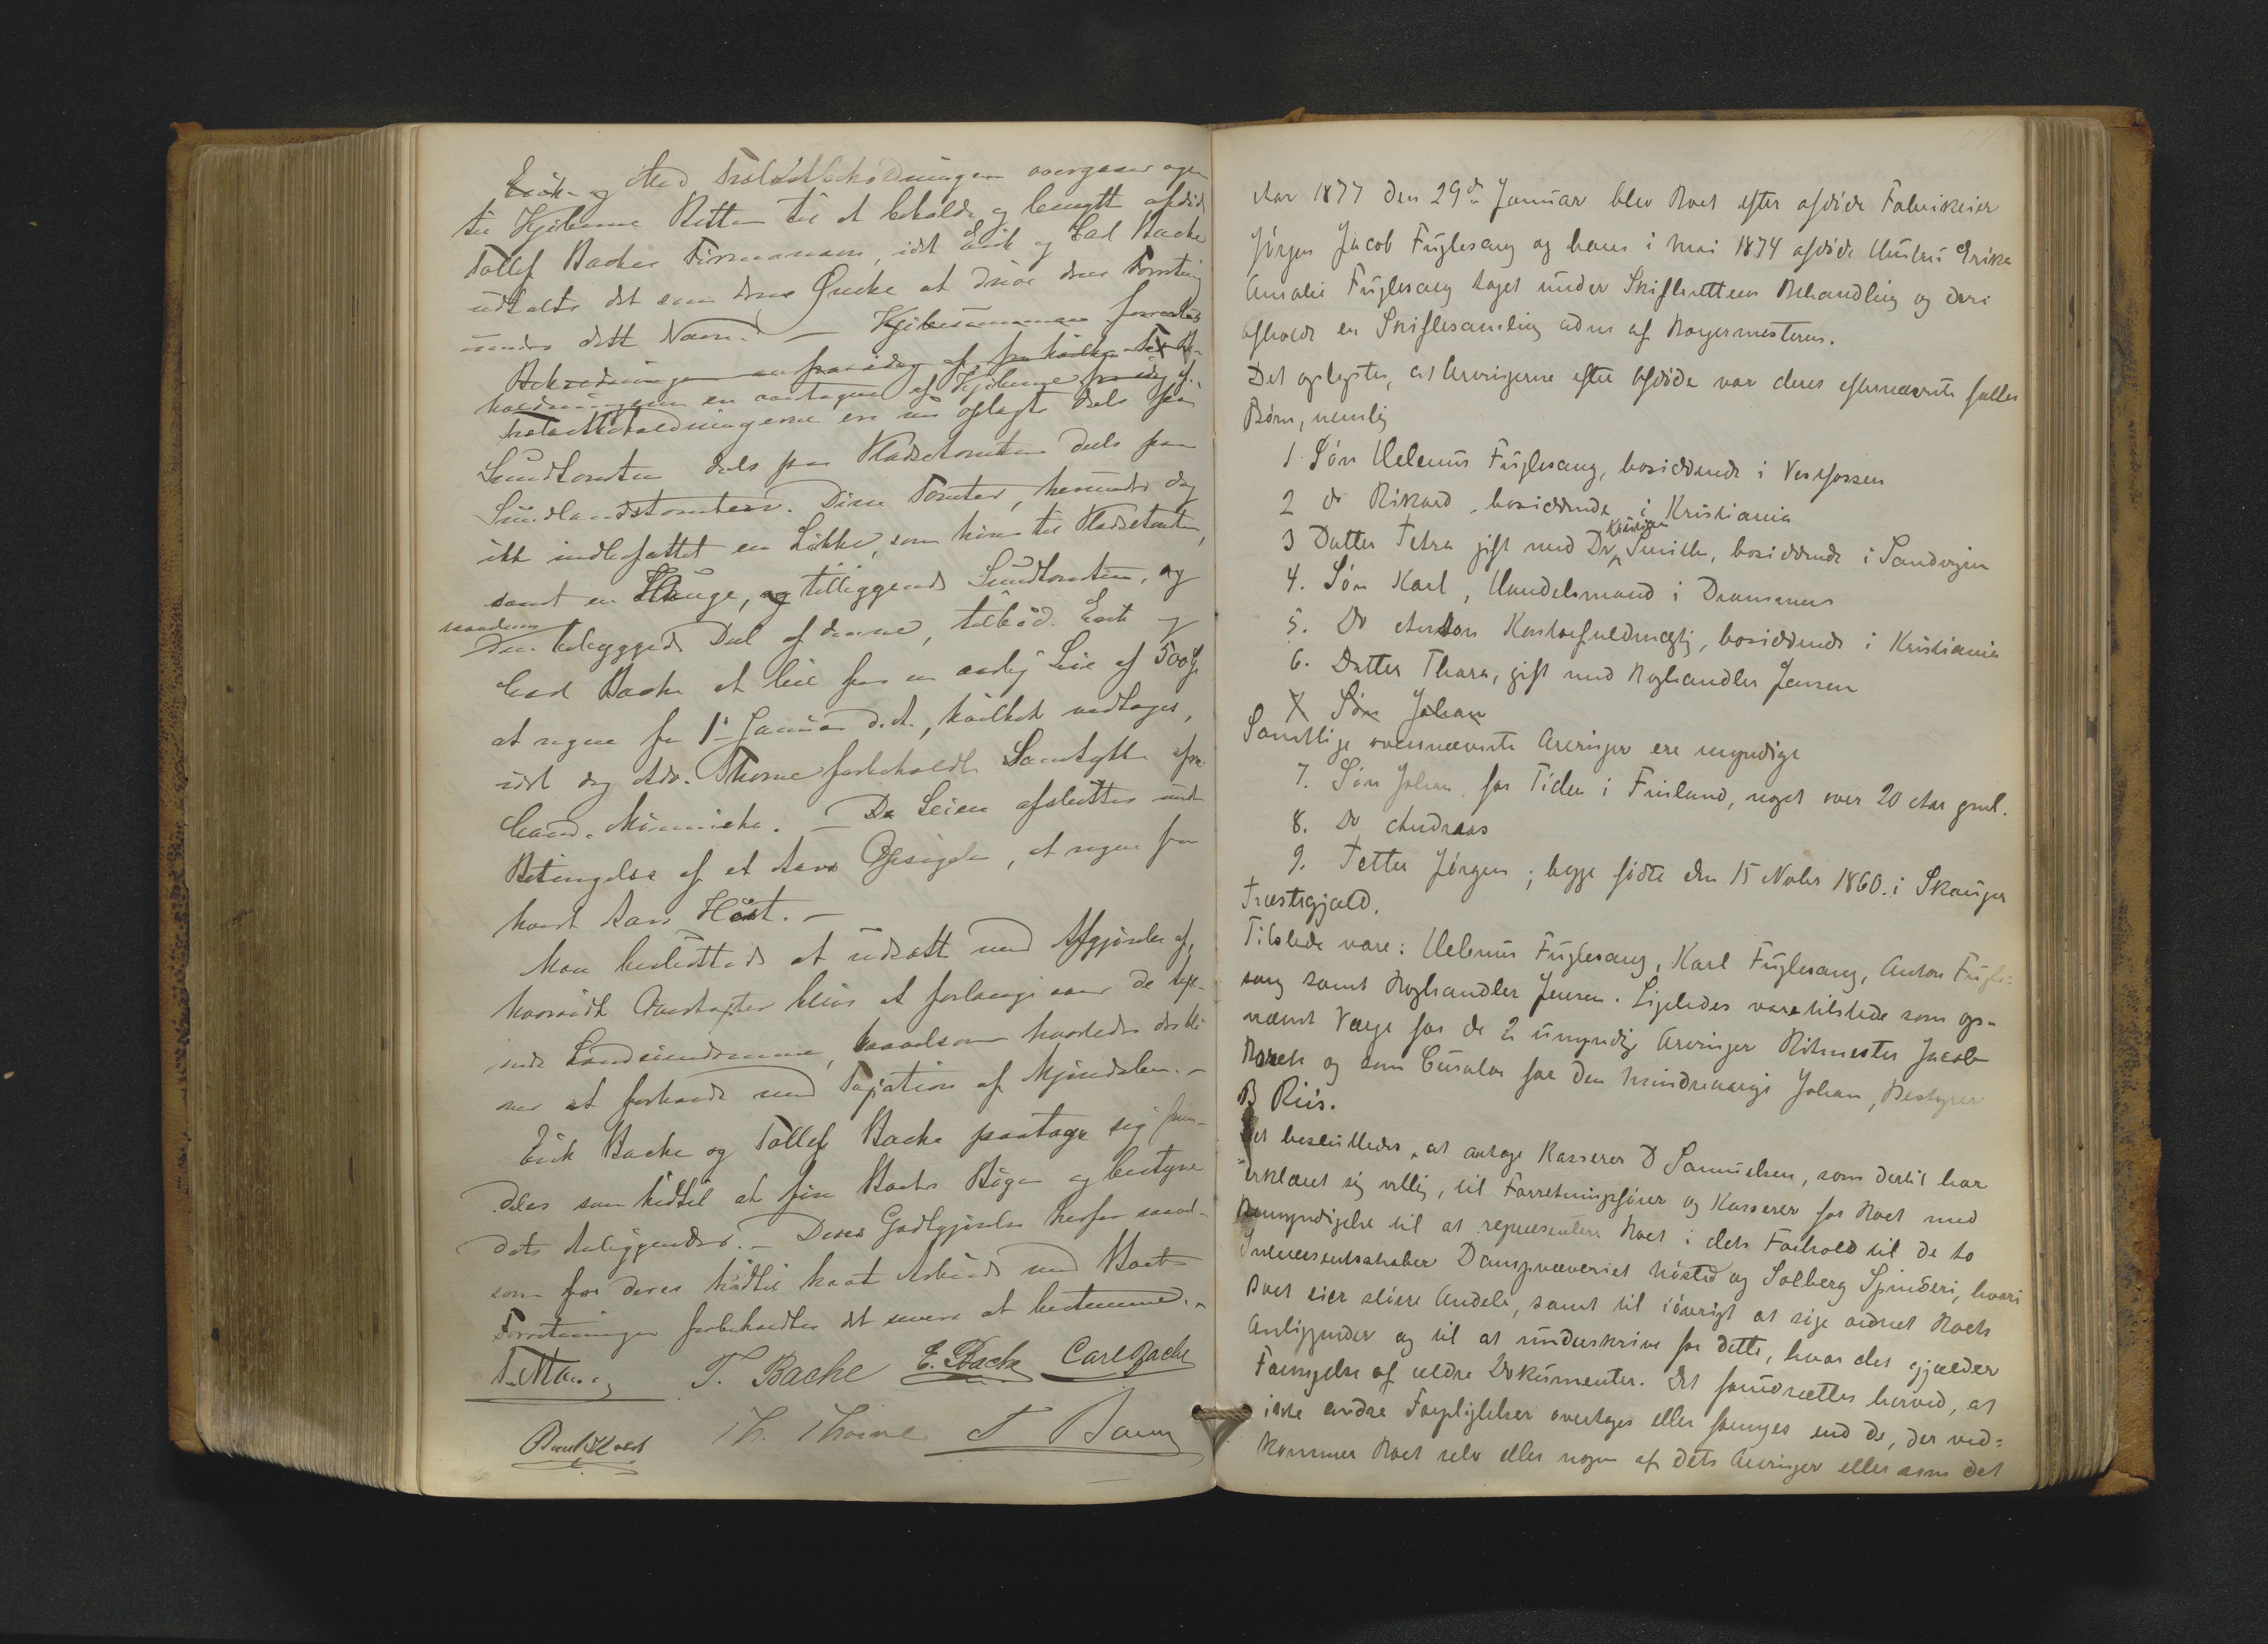 Erik og Med Trælastbeholdningen overgaar ogsaa
til Kjøberne Retten til at beholde og benytte afdøde
Tollef Baches Firmanavn, idet Erik og Carl Bache
udtalte det som deres Ønske at drive deres Forretning
under dette Navn. — Kjøbesummen forrentes
Beholdningen
holdningerne er overtagne af Kjøberne fra idag af.
Trælastbeholdningerne ere nu oplagte dels paa
Sundtomten dels paa Pladsetomten dels paa
Sundlandstomten. Disse Tomter, herunder dog
ikke indbefattet en Løkke, som hører til Pladsetomten,
samt en Hauge, og tilliggende Sundtomten, og
Den bebyggede Del af denne, tilbød Erik og
Carl Bache at leie for en aarlig Leie af 500
at regne fra 1ste Januar d. A., hvilket vedtoges,
idet dog Adv. Thorne forbeholdt Samtykke fra
Cand. Minnicke. — Da Leien afsluttes under
Betingelse af et Aars Opsigelse, at regne fra
hvert Aars Høst. —
Man besluttede at udsætte med Afgjørelse af,
hvorvidt Overtaxter blive at forlange over de
ende Landeiendomme, saavelsom hvorledes der bli
ver at forholde med Taxation af Mjøndalen. —
Erik Bache og Tollef Bache paatage sig frem-
deles som hidtil at føre Boets Bøger og bestyre
dets Anliggender. — Deres Godtgjørelse herfor saavel-
som for deres hidtil havte Arbeide med Boets
Forretninger forbeholdtes det senere at bestemme. —
T. Bache E. Bache Carl Bache
Th. Thorne
Aar 1877 den 29de Januar blev Boet efter afdøde Fabrikeier
Jørgen Jacob Fuglesang og hans i Mai 1874 afdøde Hustru Erika
Amalie Fuglesang taget under Skifterettens Behandling og deri
afholdt en Skiftesamling adm af Borgermesteren.
Det oplystes, at Arvingerne efter Afdøde var deres efternævnte fælles
Børn, nemlig
1 Søn Helenus Fuglesang, bosiddende i Vestfossen
2 do Rikard, bosiddende i Kristiania
3 Datter Petra gift med Dr Kristian Smith, bosiddende i Sandvigen
4. Søn Karl, Handelsmand i Drammen
5. Do Anton Kontorfuldmægtig, bosiddende i Kristiania
6. Datter Thora, gift med Boghandler Jensen
7 Søn Johan
Samtlige ovennævnte Arvinger ere myndige
7. Søn Johan, for Tiden i Finland, noget over 20 Aar gml.
8. Do Andreas
9. Petter Jørgen; begge fødte den 15 Novbr 1860 i Skauger
Præstegjeld.
Tilstede vare: Helenus Fuglesang, Karl Fuglesang, Anton Fugle=
sang samt Boghandler Jensen. Ligeledes vare tilstede som op-
nævnt Værge for de 2 umyndige Arvinger Ritmester Jacob
Borch og som Curator for den mindreaarige Johan, Bestyrer
B Riis.
Det besluttedes, at antage Kasserer D Samuelsen, som dertil har
erklæret sig villig, til Forretningsfører og Kasserer for Boet med
Bemyndigelse til at repræsentere Boet i dets Forhold til de to
Interessentskaber Dampvæveriet Nøsted og Solberg Spinderi, hvori
Boet eier større Andele, samt til iøvrigt at sige ordnet Boets
Anliggender og til at underskrive for dette, hvor det gjælder
Fornyelse af ældre Dokumenter. Det forudsættes herved, at
ikke andre Forpligtelser overtages eller fornyes end de, der ved=
kommer Boet selv eller nogen af dets Arvinger eller som det